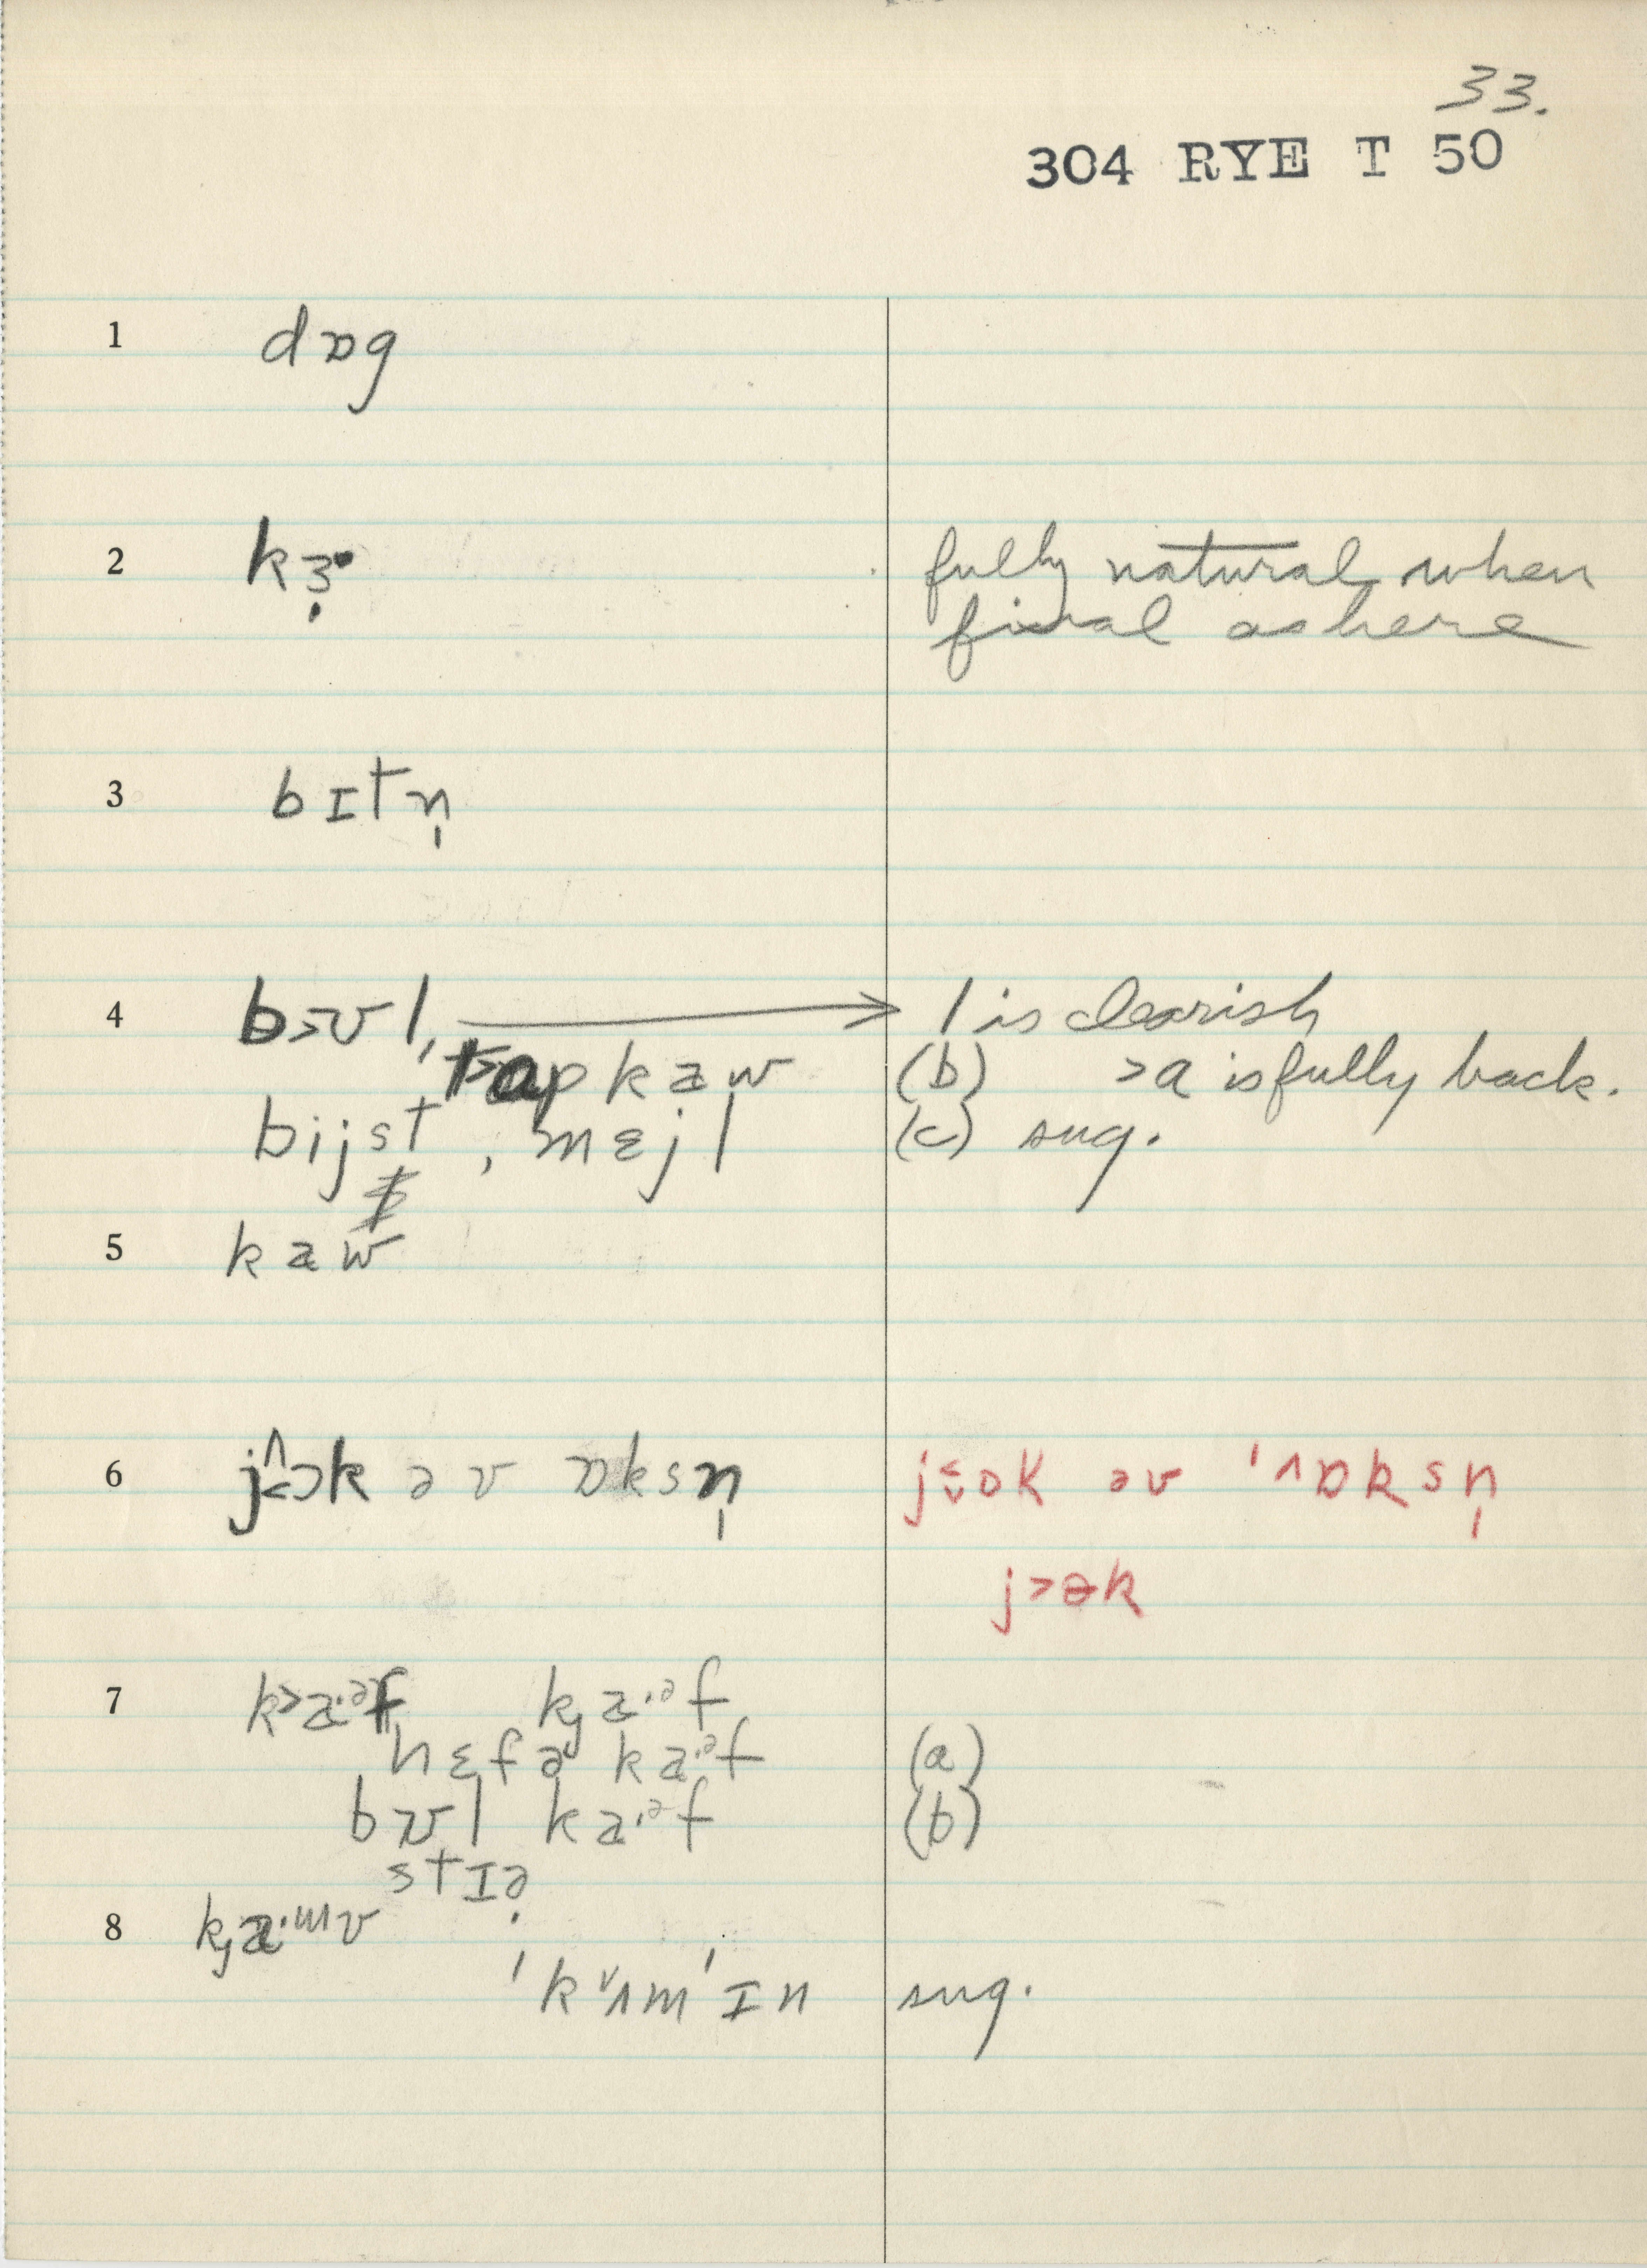 33.
304 RYE T 50
1 dɒg
2 kɜ̣˞ fully natural when
final as here
3 bɪtn̩
4 b>ʊl, → l is clearish
t>ɑp kaw (b) >ɑ is fully back.
bijst, mɛjl (c) sug.
5 kaw
6 j^<ɔk əv ɒksn̩ j<ɔk əv ˈ^ɒksn̩
j>ɵk
7 k>a·ᵊf kȷa·ᵊf
hɛfə ka·ᵊf (a)
bʊl ka·ᵊf (b)
stɪə̣
8 kȷa·ɯv
ˈkʌmˈɪn sug.